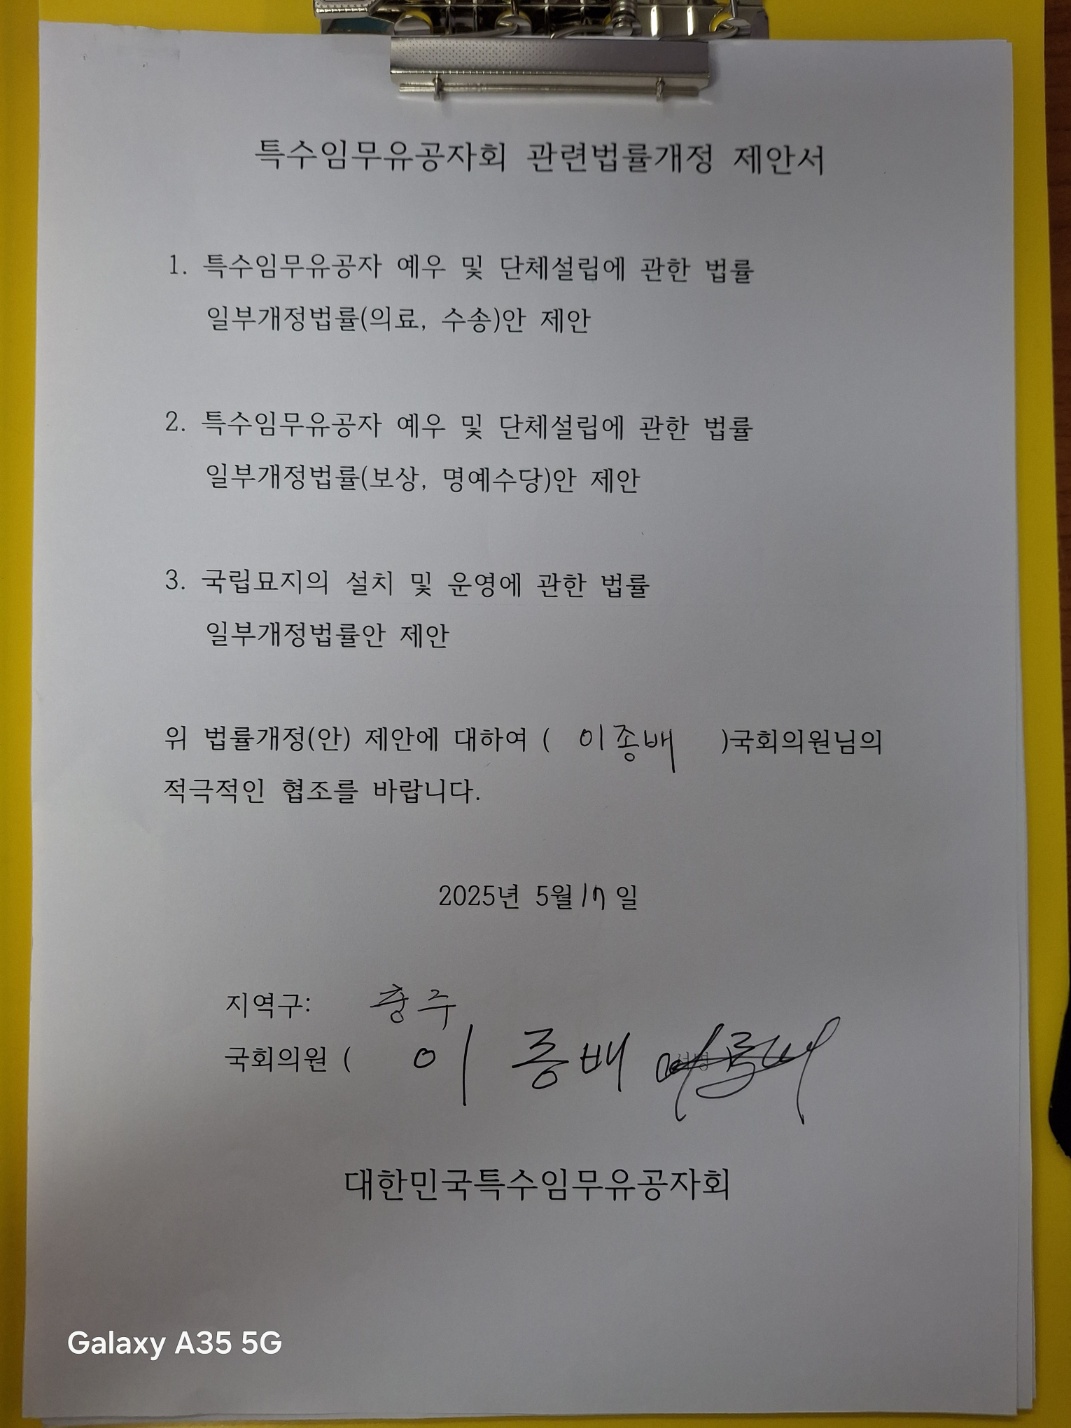 특수임무유공자회 관련법률개정 제안서
1. 특수임무유공자 예우 및 단체설립에 관한 법률
일부개정법률(의료, 수송)안 제안
2. 특수임무유공자 예우 및 단체설립에 관한 법률
일부개정법률(보상, 명예수당)안 제안
3. 국립묘지의 설치 및 운영에 관한 법률
일부개정법률안 제안
위 법률개정(안) 제안에 대하여 ( 이종배 )국회의원님의
적극적인 협조를 바랍니다.
2025년 5월 17 일
지역구: 충주
국회의원 ( 이 종배
대한민국특수임무유공자회
Galaxy A35 5G